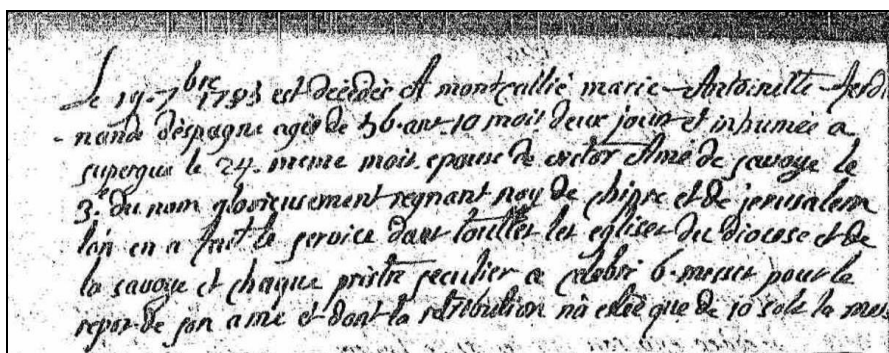 Le 19. 7bre 1785 est décédée A montcallié marie Antoinette ferdi
nande d'espagne agée de 56. ans 10 mois deux jours et inhumée a
supergue le 24. meme mois. epouse de victor Amé de savoye le
3e du nom glorieusement regnant roy de chipre et de jerusalem
l'on en a fait le service dans touttes les eglises du diocese et de
la savoye et chaque prestre seculier a celebré 6. messes pour le
repos de son ame et dont la retribution n'a estée que de 10 sols la mes